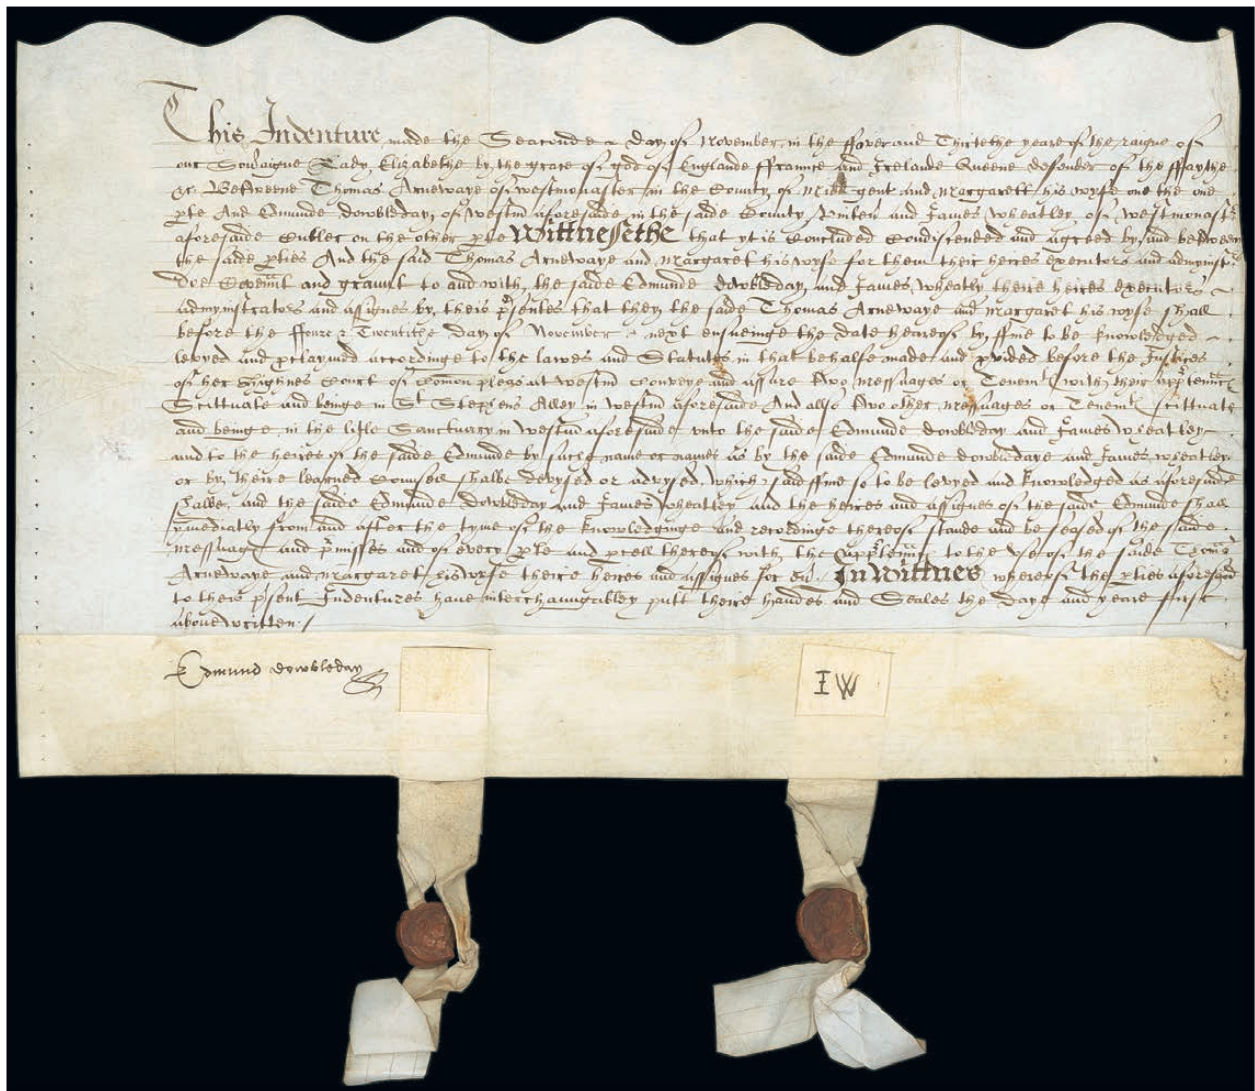 This Indenture made the Seaconde day of November in the fower and Thirtethe yeare of the raigne of
our Sov'aigne Lady Elizabethe by the grace of god of Englande ffraunce and Irelande Queene defender of the ffaythe
&c. Betweene Thomas Arnewaye of westmonaster in the County of Midd gent and Margarett his wyfe one the one
pte And Edmunde Dowbleday of westm aforesaide in the saide County and James Wheatley of westmonastr
aforesaide Cutler on the other pte Wittnessethe that yt is Concluded Condiscended and agreed by and betweene
the saide pties And the said Thomas Arnewaye and Margaret his wyfe for them their heires executors and admynistr
doe Coven'nt and graunt to and with the saide Edmunde Dowbleday and James Wheatly theire heires executors
admynistrators and assignes by theis p'sentes that they the saide Thomas Arnewaye and Margaret his wyfe shall
before the ffoure & Twentithe day of November next ensueinge the date heareof by ffine to be knowledged
levyed and pclaymed accordinge to the lawes and Statutes in that behalfe made and pvided before the Justices
of her Highnes Court of Comon pleas at westm Conveye and assure two messuages or Tenemt with their app'tennc
Scittuate and beinge in St Stephens Alley in westm aforesaide And also two other messuages or Tenemt scittuate
and beinge in the litle Sanctuary in westm aforesaide unto the saide Edmunde Dowbleday and James Wheatley
and to the heires of the saide Edmunde by such name or names as by the saide Edmunde Dowbledaye and James Wheatley
or by theire learned Counsell shalbe devysed or advysed, which said ffine so to be levyed and knowledged as aforesaide
shalbe, and the saide Edmunde Dowbleday and James Wheatley and the heires and assignes of the saide Edmunde shall
ymediatly from and after the tyme of the knowledginge and recordinge thereof stande and be seased of the saide
messuages and p'misses and of every pte and pcell thereof with the app'tennc to the use of the saide Thomas
Arnewaye and Margaret his wyfe theire heires and assignes for ev' In Wittnes whereof the pties aforesaid
to theis p'sent Indentures have interchaungeably putt theire handes and Seales the daye and yeare first
above written /
Edmund Dowbleday
IW